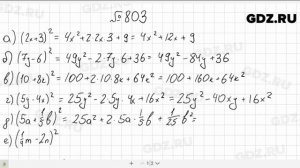 №803
GDZ.RU
а) (2x+3)² = 4x² + 2·2x·3 + 9 = 4x² + 12x + 9
б) (7y-6)² = 49y² - 2·7y·6 + 36 = 49y² - 84y + 36
в) (10+8z)² = 100 + 2·10·8z + 64z² = 100 + 160z + 64z²
г) (5y-4x)² = 25y² - 2·5y·4x + 16x² = 25y² - 40xy + 16x²
д) (5a + 1/5 b)² = 25a² + 2·5a·1/5 b + 1/25 b² =
е) (1/4 m - 2n)²
GDZ.RU
GDZ.RU